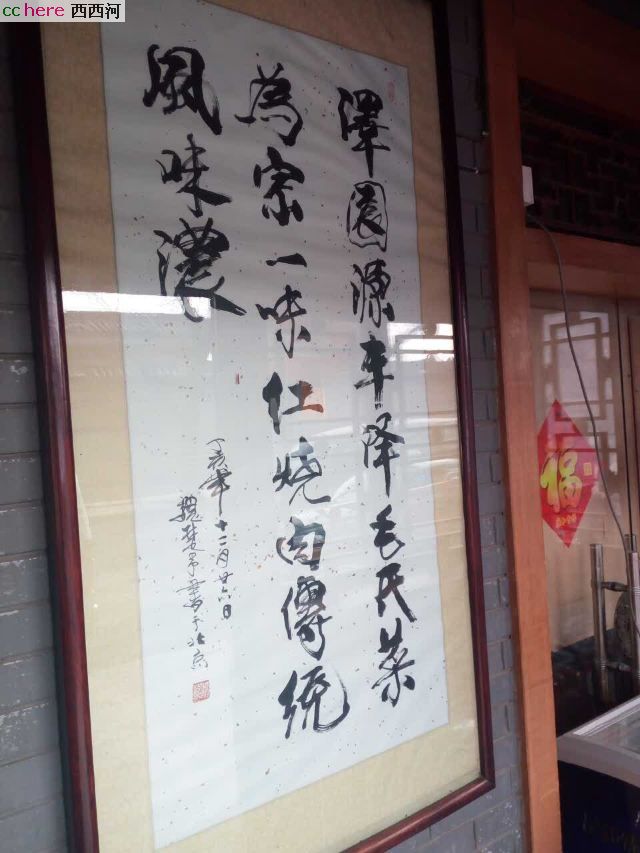 cchere 西西河
澤園源丰泽毛氏菜
為宗一味红烧肉傳統
風味濃
丁亥年十二月廿六日
魏楚予書于北京
福